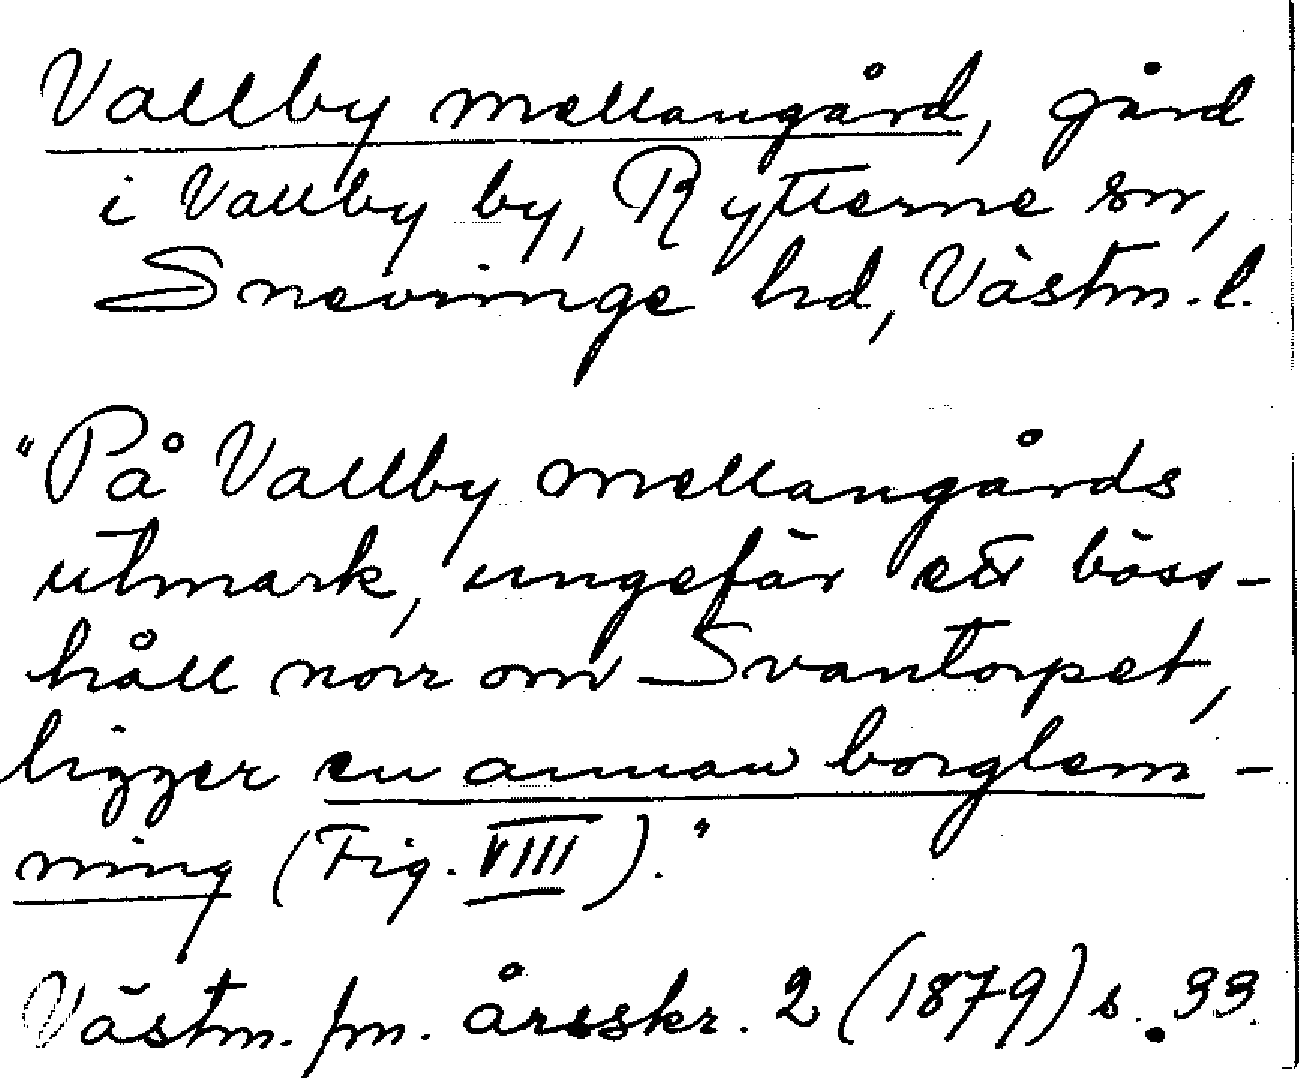 Vallby mellangård, gård
i Vallby by, Rytterne sn,
Snevringe hd, Västm. l.
"På Vallby mellangårds
utmark, ungefär ett böss-
håll norr om Svantorpet,
ligger en annan borglem-
ning (Fig. VIII)."
Västm. fm. årsskr. 2 (1879) s. 33.